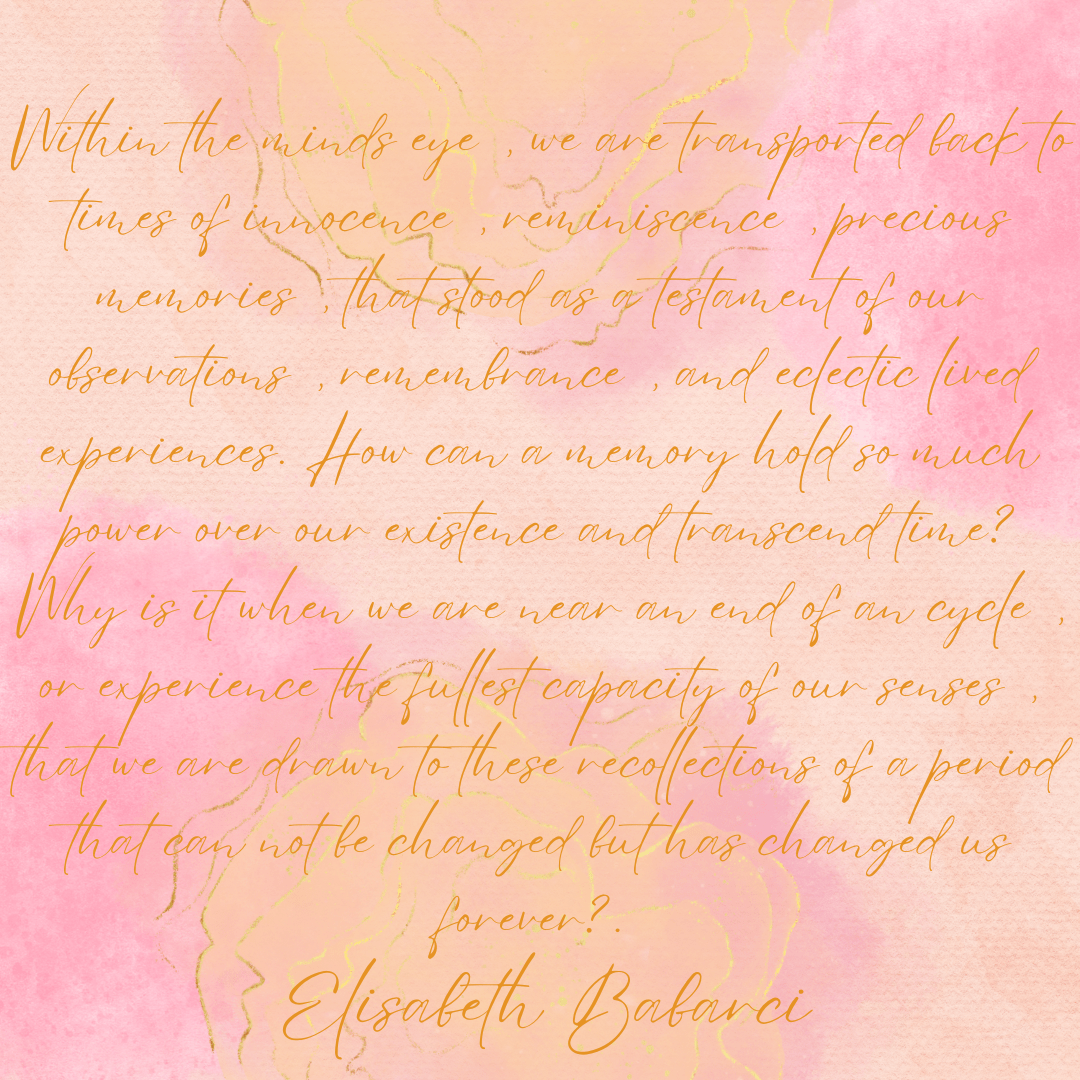 Within the minds eye , we are transported back to
times of innocence , reminiscence , precious
memories , that stood as a testament of our
observations , remembrance , and eclectic lived
experiences. How can a memory hold so much
power over our existence and transcend time?
Why is it when we are near an end of an cycle ,
or experience the fullest capacity of our senses ,
that we are drawn to these recollections of a period
that can not be changed but has changed us
forever?.
Elisabeth Babarci